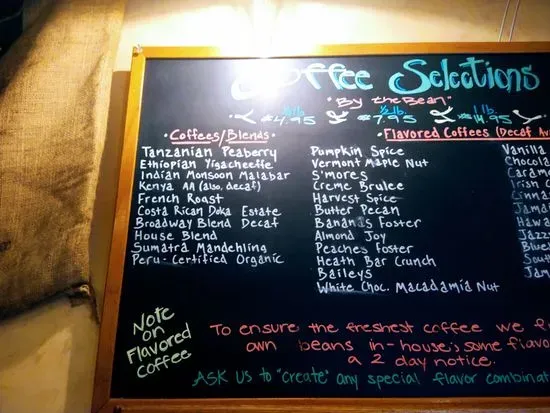 Coffee Selections
"By the Bean"
1/4 lb. 1/2 lb 1 lb.
$4.95 $7.95 $14.95
• Coffees/Blends •
• Flavored Coffees (Decaf
Tanzanian Peaberry
Ethiopian Yigacheffe
Indian Monsoon Malabar
Kenya AA (also, decaf)
French Roast
Costa Rican Doka Estate
Broadway Blend Decaf
House Blend
Sumatra Mandehling
Peru - Certified Organic
Pumpkin Spice
Vermont Maple Nut
S'mores
Creme Brulee
Harvest Spice
Butter Pecan
Bananas Foster
Almond Joy
Peaches Foster
Heath Bar Crunch
Baileys
White Choc. Macadamia Nut
Vanilla
Chocola
Carame
Irish C
Cinna
Jama
Hawa
Jazz
Blue
Sout
Jam
Note
on
Flavored
Coffee
To ensure the freshest coffee we f
own beans in-house; some flavo
a 2 day notice.
ASK US to "create" any special flavor combinat